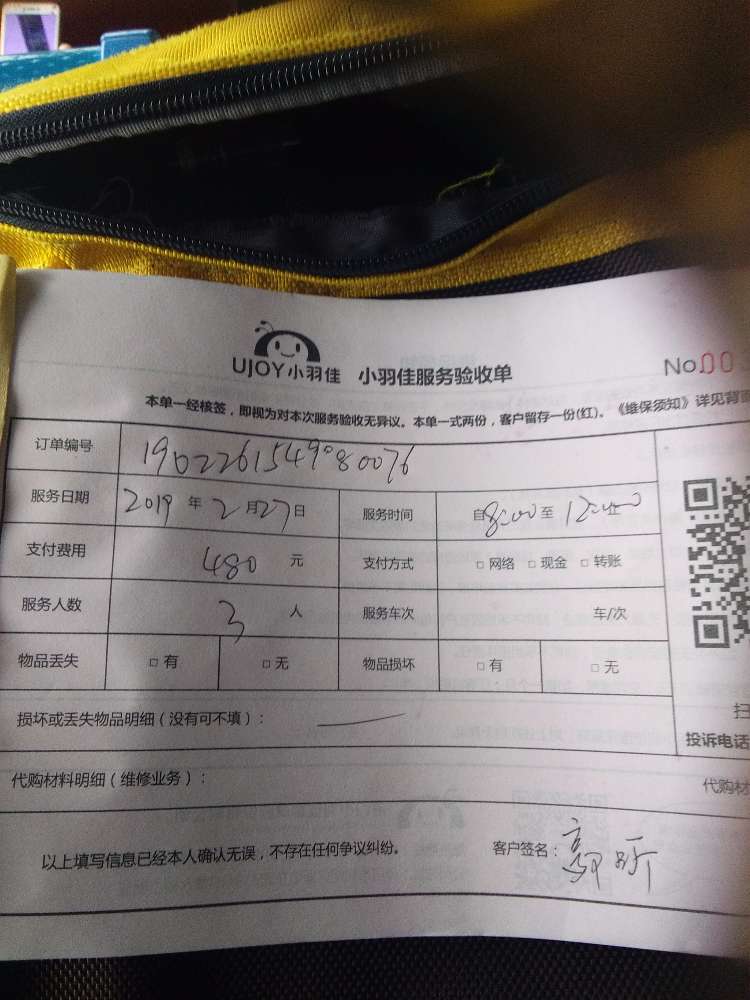 UJOY小羽佳 小羽佳服务验收单 No.00
本单一经核签,即视为对本次服务验收无异议。本单一式两份,客户留存一份(红)。《维保须知》详见背面
订单编号 1902261549080076
服务日期 2019 年 2 月 27 日 服务时间 自 8:00 至 12:00
支付费用 480 元 支付方式 □ 网络 □ 现金 □ 转账
服务人数 3 人 服务车次 车/次
物品丢失 □ 有 □ 无 物品损坏 □ 有 □ 无
扫
损坏或丢失物品明细(没有可不填): 投诉电话
代购材料明细(维修业务): 代购材
以上填写信息已经本人确认无误,不存在任何争议纠纷。 客户签名: